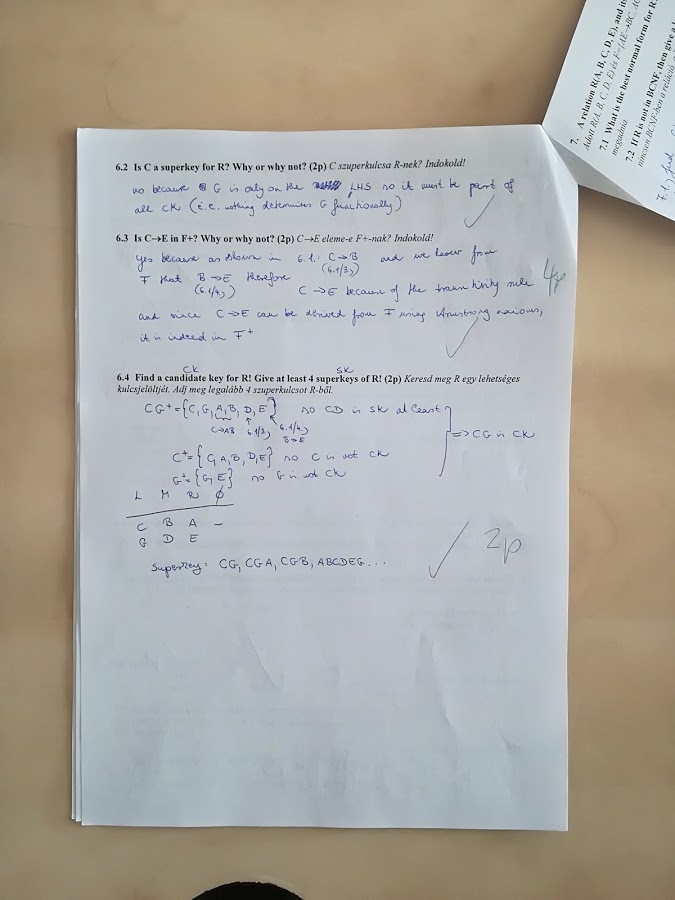 6.2 Is C a superkey for R? Why or why not? (2p) C szuperkulcsa R-nek? Indokold!
no because G is only on the LHS so it must be part of
all CK (i.e. nothing determines G functionally)
6.3 Is C→E in F+? Why or why not? (2p) C→E eleme-e F+-nak? Indokold!
yes because as shown in 6.1.: C→B and we know from
(6.1/3.)
F that B→E therefore
(6.1/4.)
C→E because of the transitivity rule
4p
and since C→E can be derived from F using Armstrong axioms,
it is indeed in F+
CK SK
6.4 Find a candidate key for R! Give at least 4 superkeys of R! (2p) Keresd meg R egy lehetséges
kulcsjelöltjét. Adj meg legalább 4 szuperkulcsot R-ből.
CG+={C,G,A,B,D,E} so CD is SK at least
C→AB 6.1/3, 6.1/4,
B→E
=>CG is CK
C+={C,A,B,D,E} so C is not CK
G+={G,E} so G is not CK
L M R Ø
C B A –
G D E
Superkey: CG, CGA, CGB, ABCDEG...
2p
7. A relation R(A, B, C, D, E), and
Adott R(A, B, C, D, E) és F={AE→BC,
7.1 What is the best normal form for R
megadnia
7.2 If R is not in BCNF, then give a
nincsen BCNF-ben a reláció,